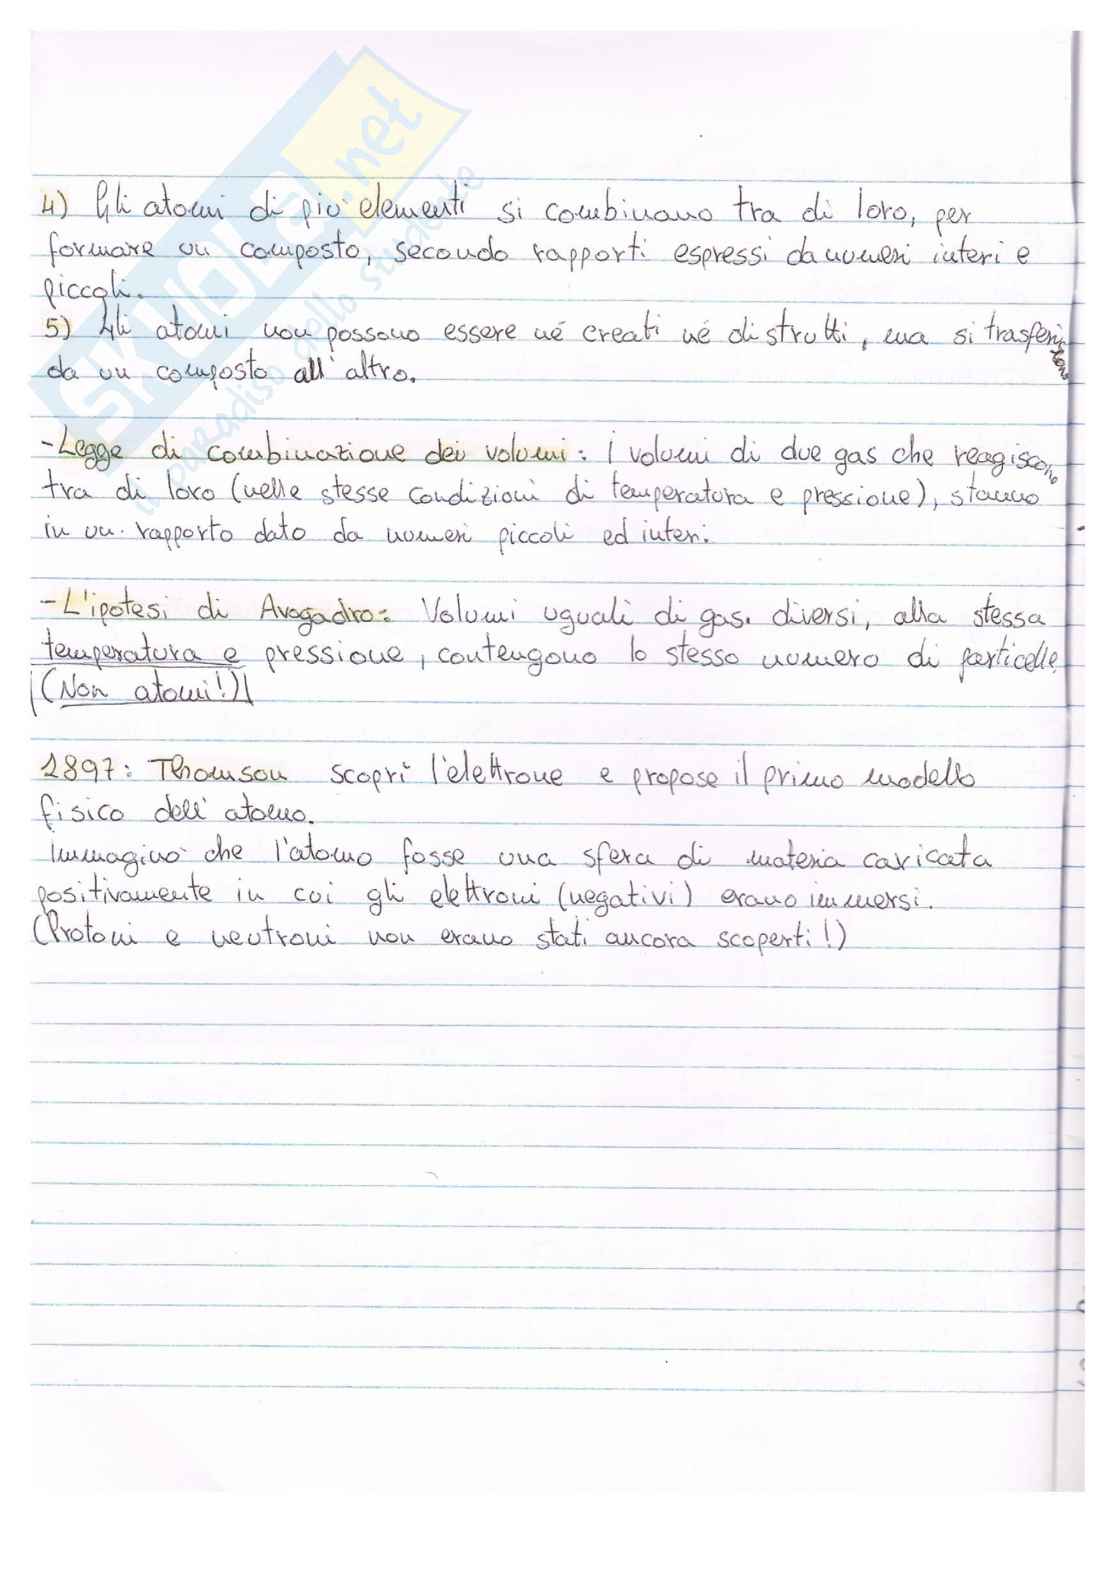 SKUOLA.net
il paradiso dello studente
4) Gli atomi di più elementi si combinano tra di loro, per
formare un composto, secondo rapporti espressi da numeri interi e
piccoli.
5) Gli atomi non possono essere né creati né distrutti, ma si trasferiscono
da un composto all'altro.
-Legge di combinazione dei volumi: i volumi di due gas che reagiscono
tra di loro (nelle stesse condizioni di temperatura e pressione), stanno
in un rapporto dato da numeri piccoli ed interi.
-L'ipotesi di Avogadro: Volumi uguali di gas diversi, alla stessa
temperatura e pressione, contengono lo stesso numero di particelle
(Non atomi!)
1897: Thomson scoprì l'elettrone e propose il primo modello
fisico dell'atomo.
Immaginò che l'atomo fosse una sfera di materia caricata
positivamente in cui gli elettroni (negativi) erano immersi.
(Protoni e neutroni non erano stati ancora scoperti!)